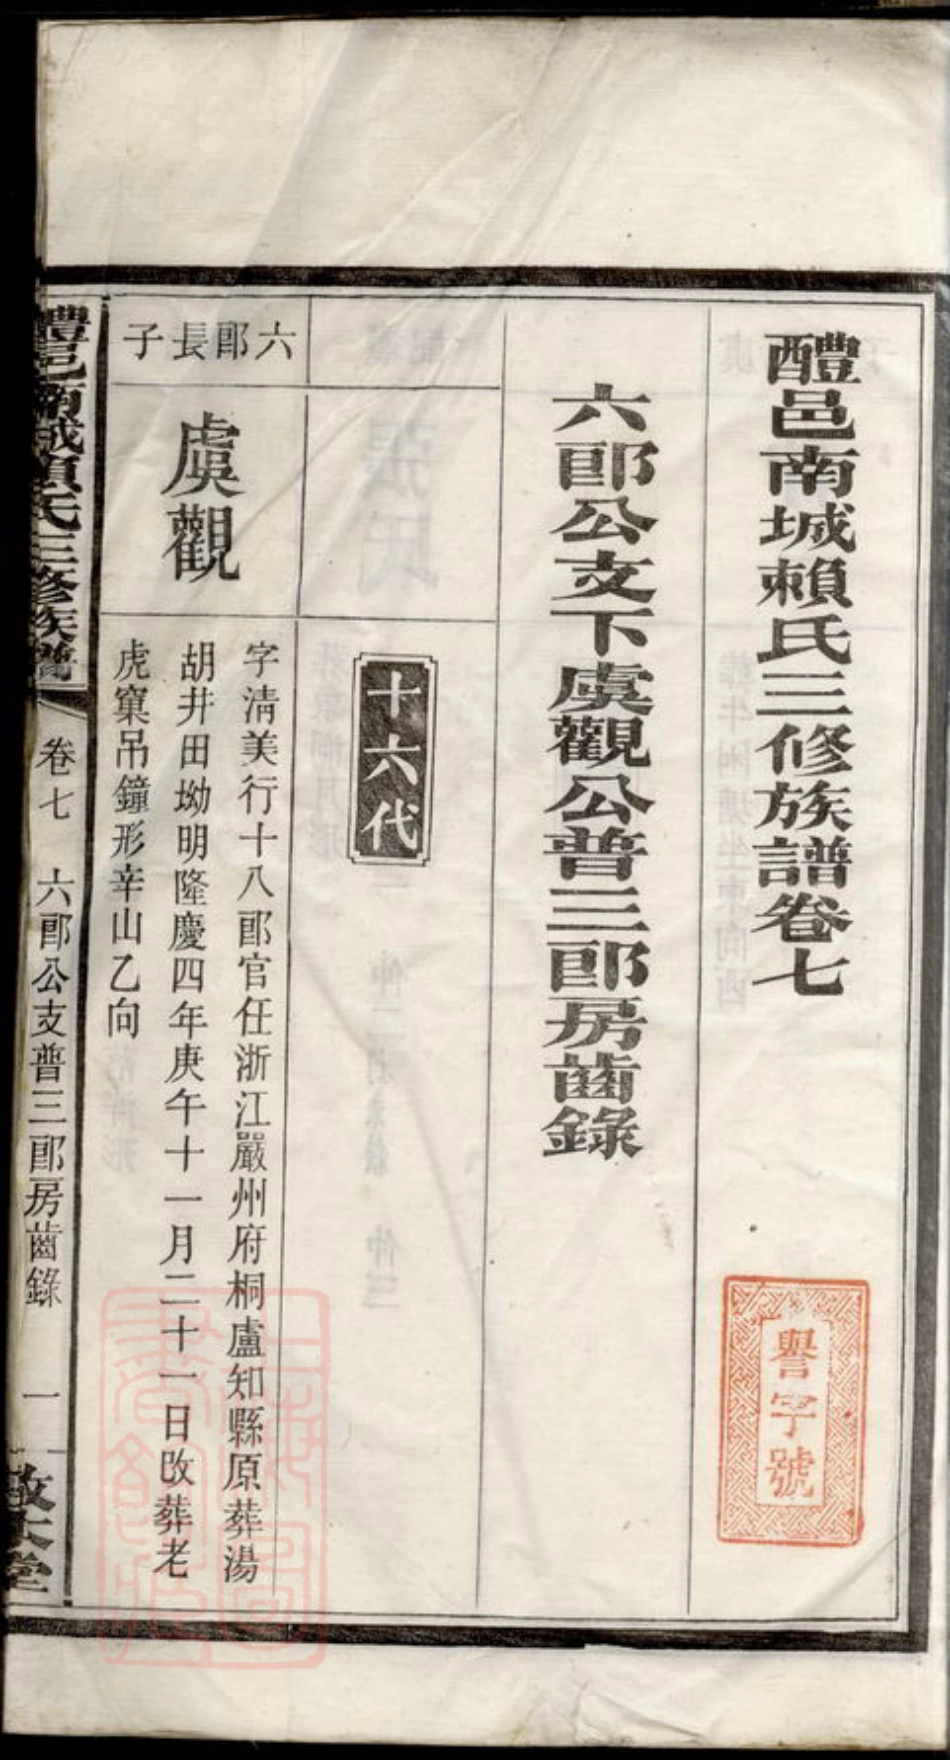 醴邑南城賴氏三修族譜卷七
六郎公支下虞觀公普三郎房齒錄
十六代
六郎長子
虞觀
字清美行十八郎官任浙江嚴州府桐盧知縣原葬湯
胡井田坳明隆慶四年庚午十一月二十一日改葬老
虎窠吊鐘形辛山乙向
醴邑南城賴氏三修族譜
卷七 六郎公支普三郎房齒錄 一
譽字號